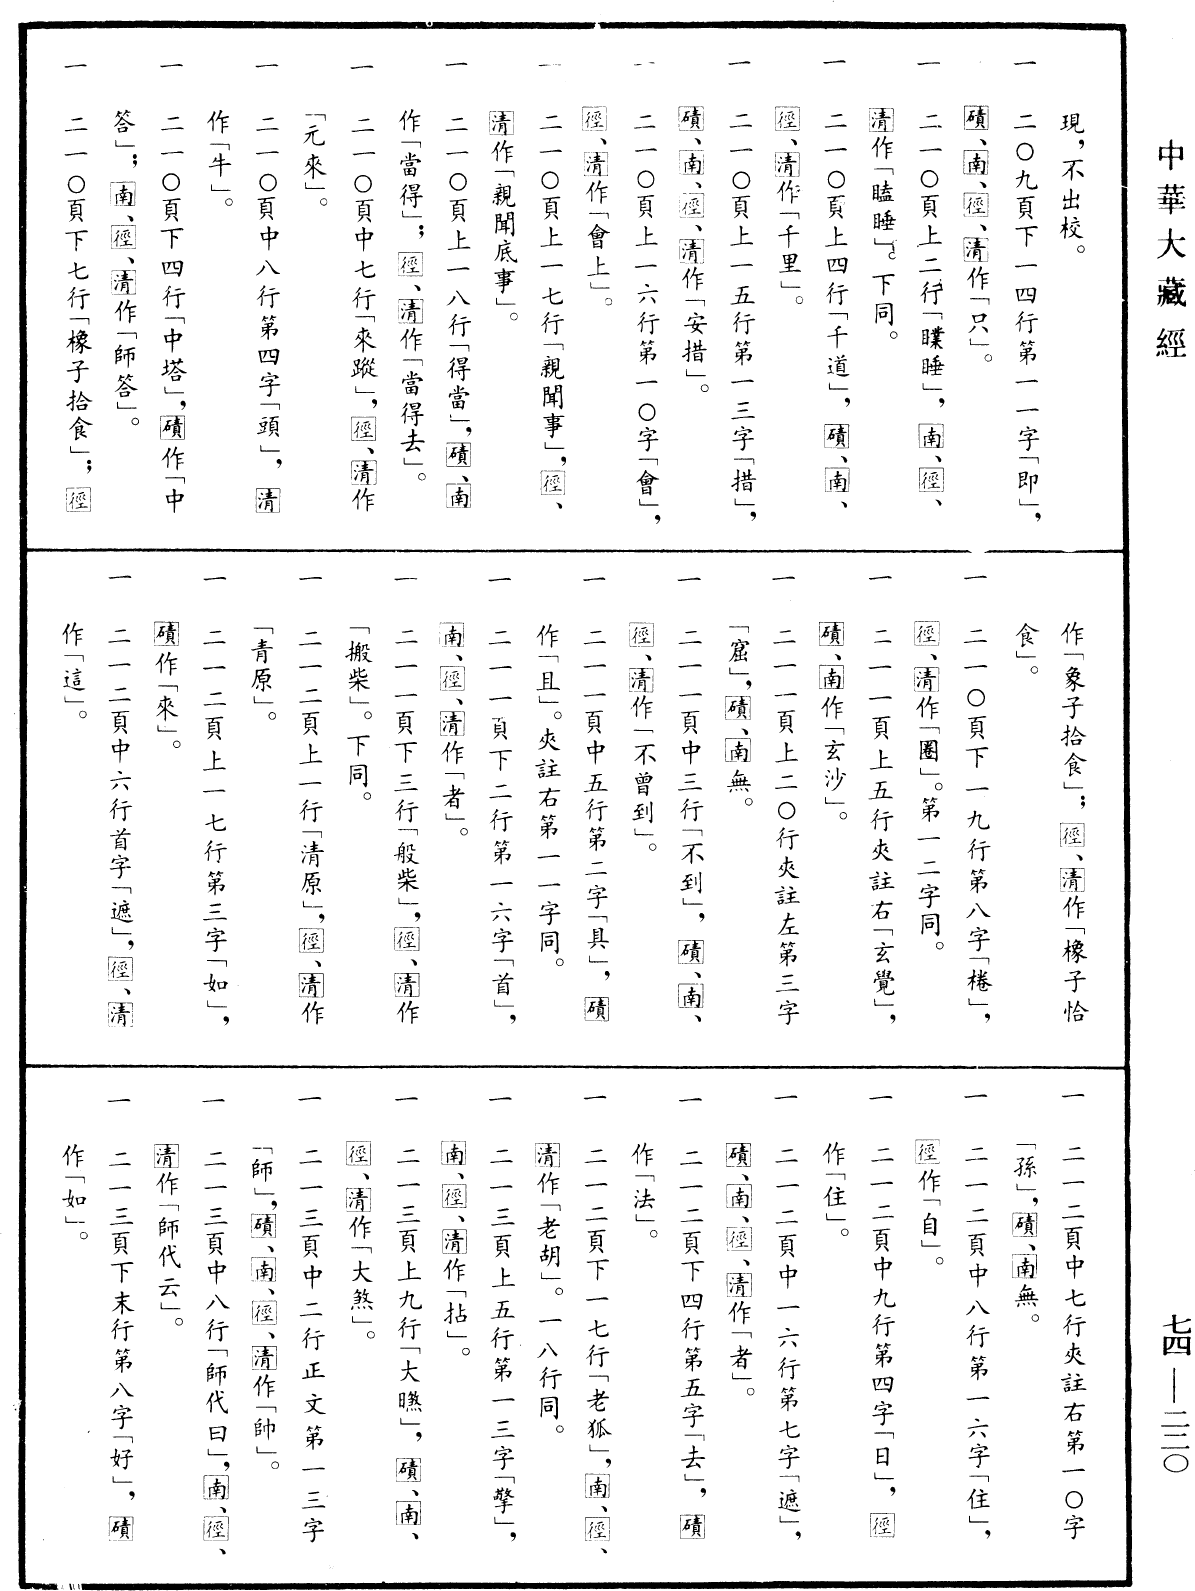 中華大藏經
現，不出校。
一　二〇九頁下一四行第一一字「即」，
磧、南、徑、清作「只」。
一　二一〇頁上二行「瞨睡」，南、徑、
清作「瞌睡」。下同。
一　二一〇頁上四行「千道」，磧、南、
徑、清作「千里」。
一　二一〇頁上一五行第一三字「措」，
磧、南、徑、清作「安措」。
一　二一〇頁上一六行第一〇字「會」，
徑、清作「會上」。
一　二一〇頁上一七行「親聞事」，徑、
清作「親聞底事」。
一　二一〇頁上一八行「得當」，磧、南
作「當得」；徑、清作「當得去」。
一　二一〇頁中七行「來蹤」，徑、清作
「元來」。
一　二一〇頁中八行第四字「頭」，清
作「牛」。
一　二一〇頁下四行「中塔」，磧作「中
答」；南、徑、清作「師答」。
一　二一〇頁下七行「橡子拾食」；徑
作「象子拾食」；徑、清作「橡子恰
食」。
一　二一〇頁下一九行第八字「棬」，
徑、清作「圈」。第一二字同。
一　二一一頁上五行夾註右「玄覺」，
磧、南作「玄沙」。
一　二一一頁上二〇行夾註左第三字
「窟」，磧、南無。
一　二一一頁中三行「不到」，磧、南、
徑、清作「不曾到」。
一　二一一頁中五行第二字「具」，磧
作「且」。夾註右第一一字同。
一　二一一頁下二行第一六字「首」，
南、徑、清作「者」。
一　二一一頁下三行「般柴」，徑、清作
「搬柴」。下同。
一　二一二頁上一行「清原」，徑、清作
「青原」。
一　二一二頁上一七行第三字「如」，
磧作「來」。
一　二一二頁中六行首字「遮」，徑、清
作「這」。
一　二一二頁中七行夾註右第一〇字
「孫」，磧、南無。
一　二一二頁中八行第一六字「住」，
徑作「自」。
一　二一二頁中九行第四字「日」，徑
作「住」。
一　二一二頁中一六行第七字「遮」，
磧、南、徑、清作「者」。
一　二一二頁下四行第五字「去」，磧
作「法」。
一　二一二頁下一七行「老狐」，南、徑、
清作「老胡」。一八行同。
一　二一三頁上五行第一三字「擎」，
南、徑、清作「拈」。
一　二一三頁上九行「大㬠」，磧、南、
徑、清作「大煞」。
一　二一三頁中二行正文第一三字
「師」，磧、南、徑、清作「帥」。
一　二一三頁中八行「師代曰」，南、徑、
清作「師代云」。
一　二一三頁下末行第八字「好」，磧
作「如」。
七四—二二〇